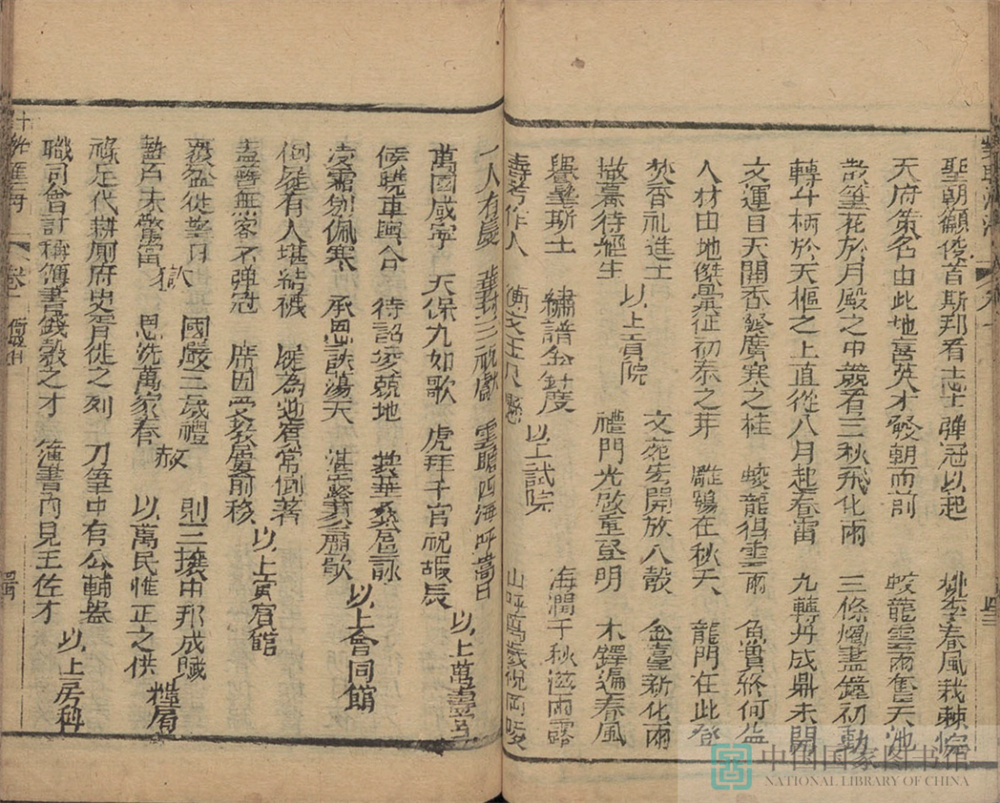 聖朝顧後首斯邦看志士彈冠以起 桃李春風栽棘院
天府策名由此地喜英才發朝而前 蛟龍雲雨奮天池
散筆花於月殿之中競看三秋飛化雨 三條燭盡鐘初動
轉斗柄於天樞之上直從八月起春雷 九轉丹成鼎未開
文運目天開香發廣寒之桂 蛟龍得雲雨 魚貫終何益
人材由地傑彙征初泰之芽 雕鶚在秋天 龍門在此登
焚香礼進士 文苑宏開放八彀 金臺新化雨
撤幕待經生 以上貢院 禮門光啟重堅明 木鐸遍春風
譽髦斯士 繡譜金針度 海濶千秋滋雨露
壽考作人 衡文玉尺懸 以上試院 山呼萬歲
一人有慶 華封三祝獻 雲瞻四海呼嵩日
萬國咸寧 天保九如歌 虎拜千官祝嘏辰 以上萬壽宫
候曉車輿合 待詔 地 扆詠
凌霜劍佩寒 承恩詄蕩天 湛露蓼蕭歌 以上會同館
倒屣有人堪結襪 屣為迎賓常倒著
盍簪無客不彈冠 席因受教屢前移 以上賓館
哀矜從幸日 國嚴三歲禮 則三壤中邦成賦
蟄百未驚雷 獄 恩洗萬家春 赦 以萬民惟正之供 糧房
祿足代耕厠府史胥徙之列 刀筆中有公輔器
職司會計稱簿書錢穀之才 簿書内見王佐才 以上房科
卷十 衙署
中国国家图书馆
NATIONAL LIBRARY OF CHINA